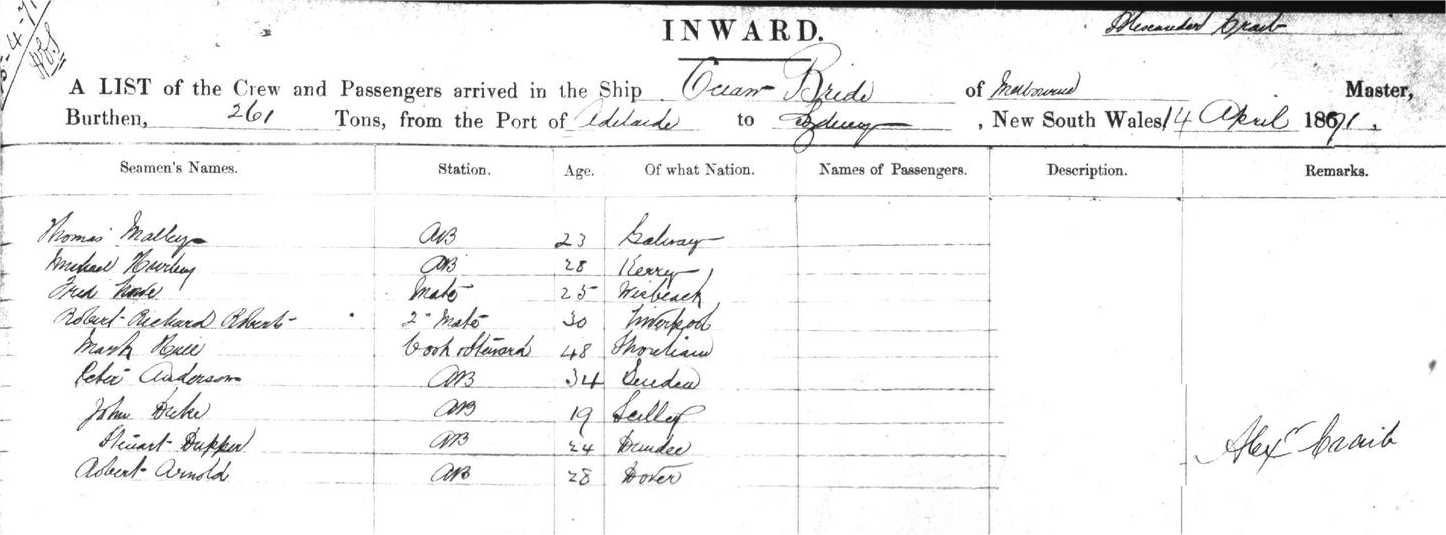 INWARD.
Alexander Craib
A LIST of the Crew and Passengers arrived in the Ship Ocean Bride of Melbourne Master,
Burthen, 261 Tons, from the Port of Adelaide to Sydney, New South Wales, 14 April 1871.
Seamen's Names. Station. Age. Of what Nation. Names of Passengers. Description. Remarks.
Thomas Malley AB 23 Galway
Michael Hurley AB 28 Kerry
Fred Mate 25 Wisbeach
Robert Richard Roberts 2" Mate 30 Liverpool
Mark Hull Cook & Steward 48 Shoreham
Peter Anderson AB 34
John Duke AB 19 Scilly
Steuart Dupper AB 24 Dundee
Alexr Craib
Robert Arnold AB 28 Dover